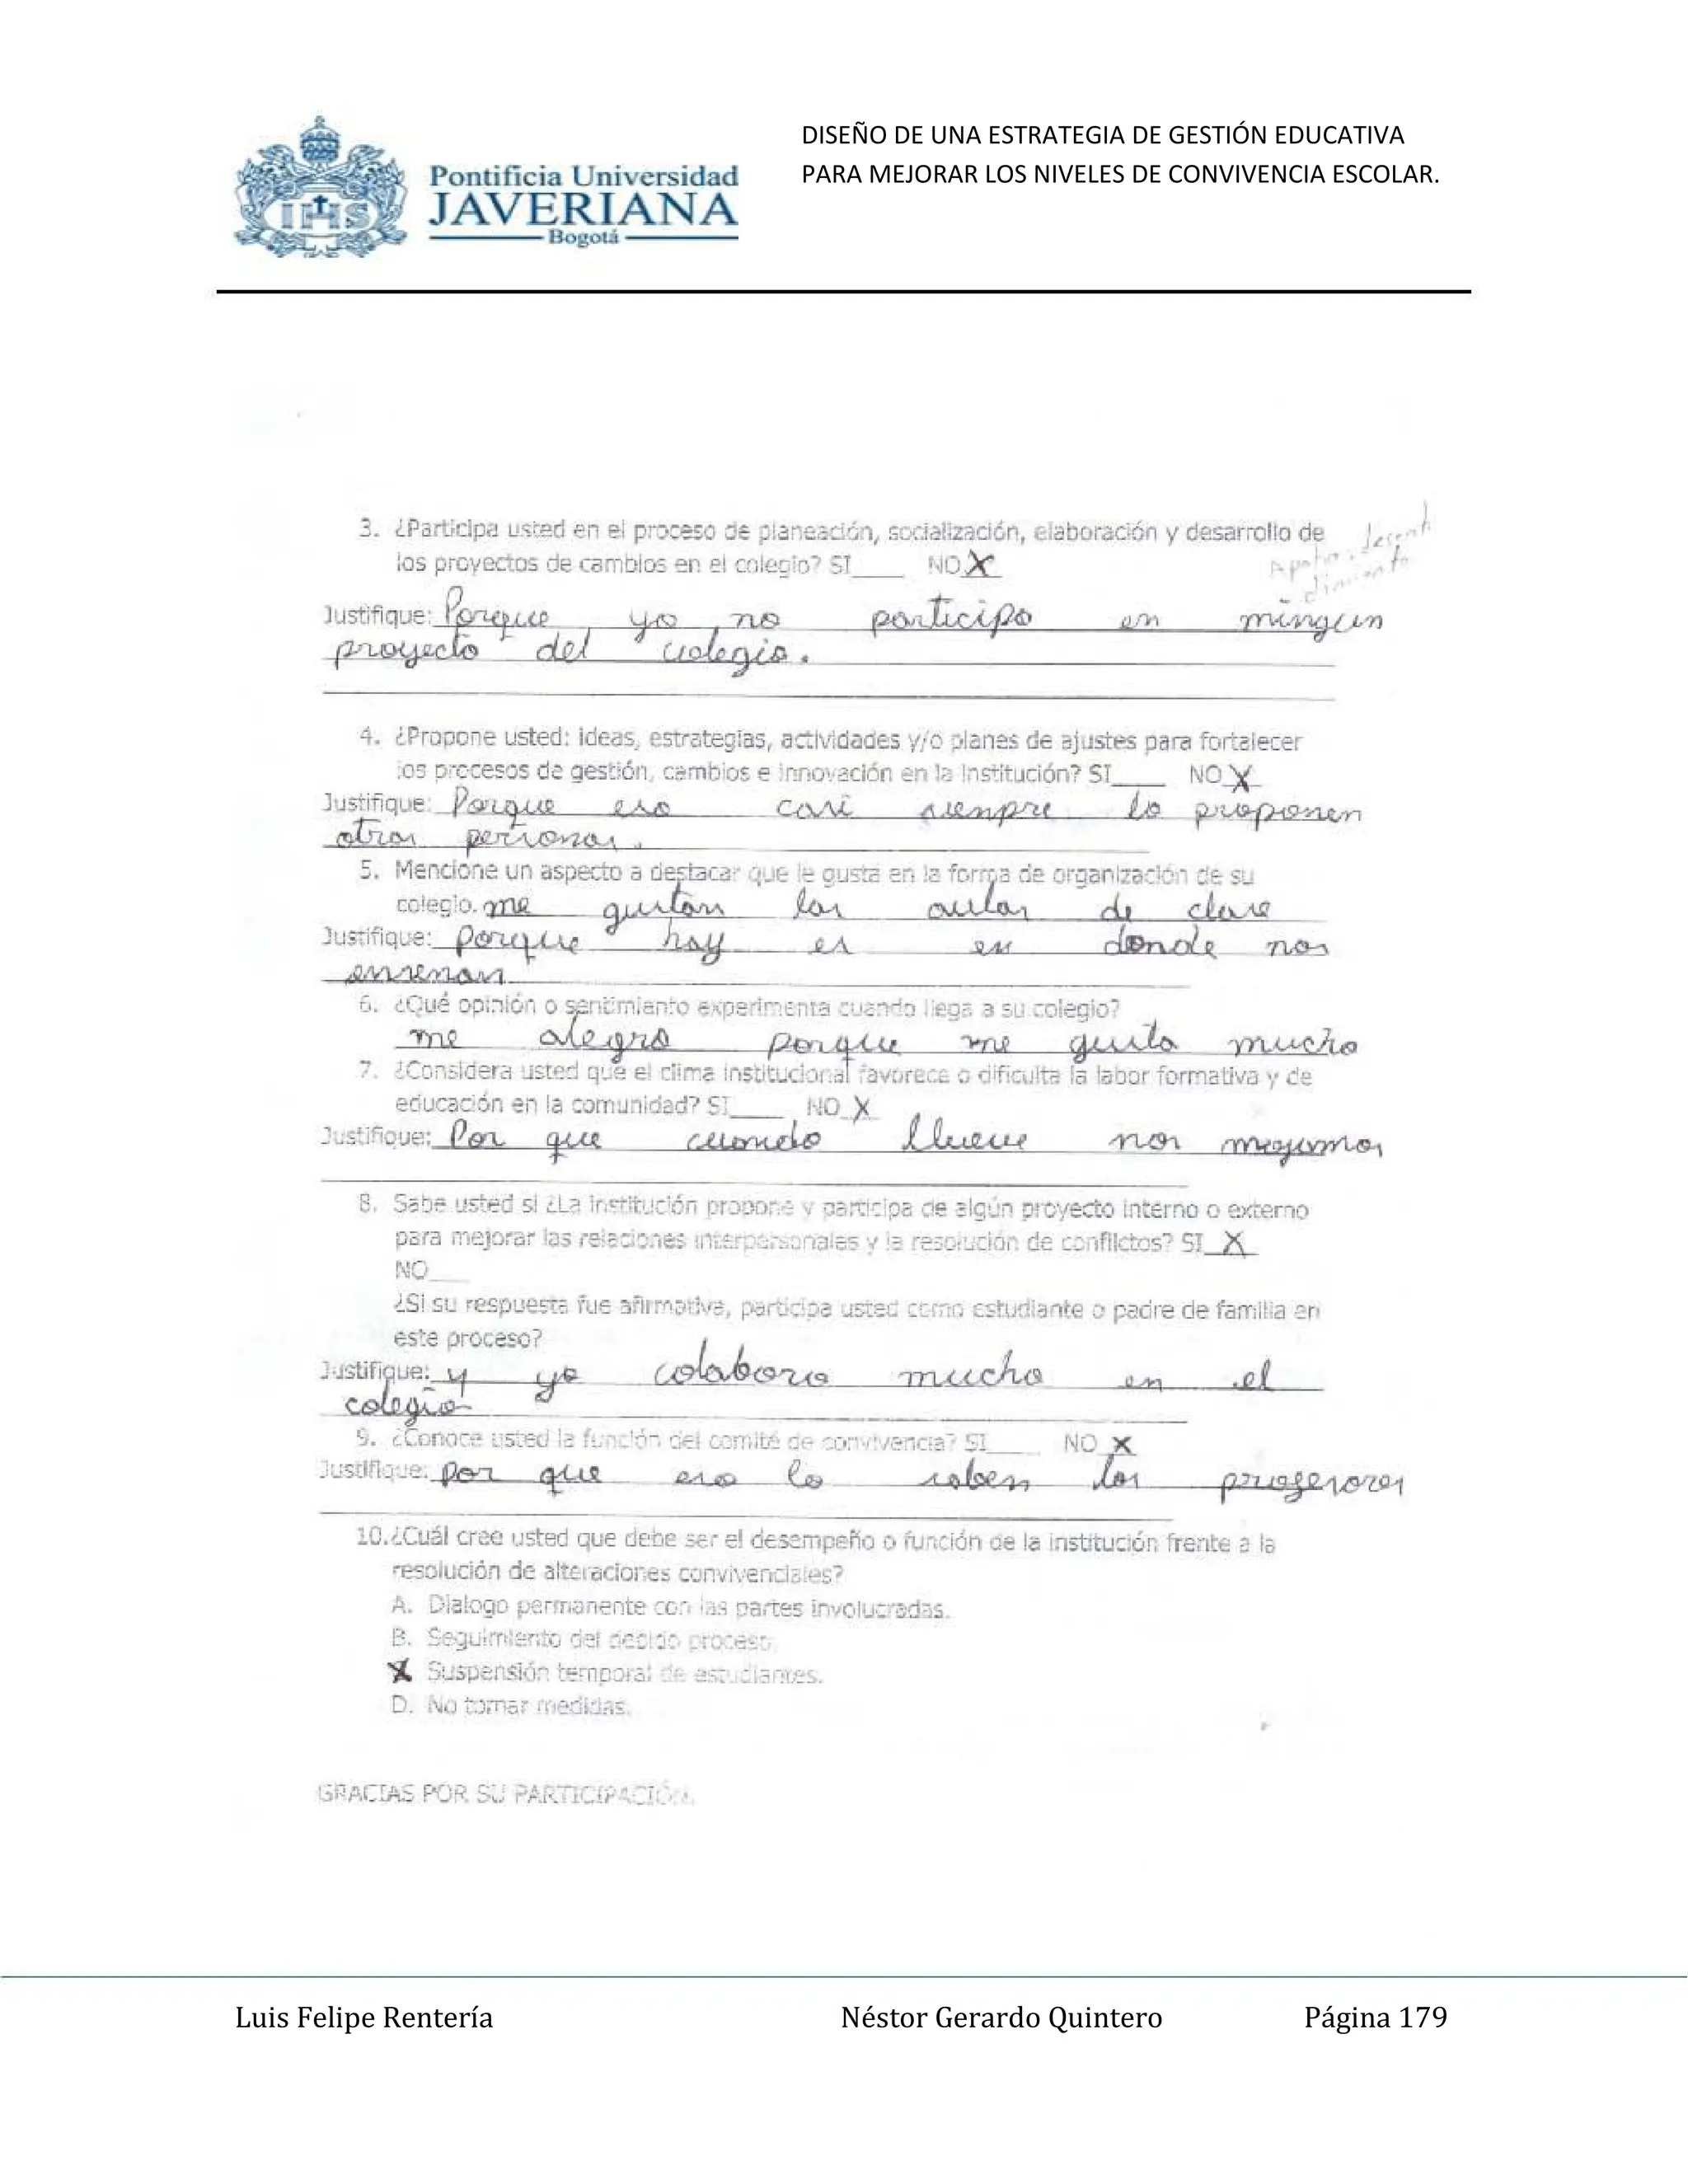 DISEÑO DE UNA ESTRATEGIA DE GESTIÓN EDUCATIVA
PARA MEJORAR LOS NIVELES DE CONVIVENCIA ESCOLAR.
Pontificia Universidad
JAVERIANA
Bogotá
IHS
3. ¿Participa usted en el proceso de planeación, socialización, elaboración y desarrollo de
los proyectos de cambios en el colegio? SI____ NO X
Justifique: Porque yo no participo en mingun
proyecto del colegio.
4. ¿Propone usted: ideas, estrategias, actividades y/o planes de ajustes para fortalecer
los procesos de gestión, cambios e innovación en la Institución? SI____ NO X
Justifique: Porque eso casi sienpre lo proponen
otras personas.
5. Mencione un aspecto a destacar que le gusta en la forma de organización de su
colegio. me gustan las aulas de clase
Justifique: porque hay es en donde nos
ensenan
6. ¿Qué opinión o sentimiento experimenta cuando llega a su colegio?
me alegro porque me gusta mucho
7. ¿Considera usted que el clima institucional favorece o dificulta la labor formativa y de
educación en la comunidad? SI____ NO X
Justifique: Por que cuando llueve nos mojamos
8. Sabe usted si ¿La institución propone y participa de algún proyecto interno o externo
para mejorar las relaciones interpersonales y la resolución de conflictos? SI X
NO___
¿Si su respuesta fue afirmativa, participa usted como estudiante o padre de familia en
este proceso?
Justifique: y yo colaboro mucho en el
colegio
9. ¿Conoce usted la función del comité de convivencia? SI____ NO X
Justifique: por que eso lo saben los profesores
10. ¿Cuál cree usted que debe ser el desempeño o función de la institución frente a la
resolución de alteraciones convivenciales?
A. Dialogo permanente con las partes involucradas.
B. Seguimiento del debido proceso.
X Suspensión temporal de estudiantes.
D. No tomar medidas.
GRACIAS POR SU PARTICIPACIÓN.
Luis Felipe Rentería Néstor Gerardo Quintero Página 179